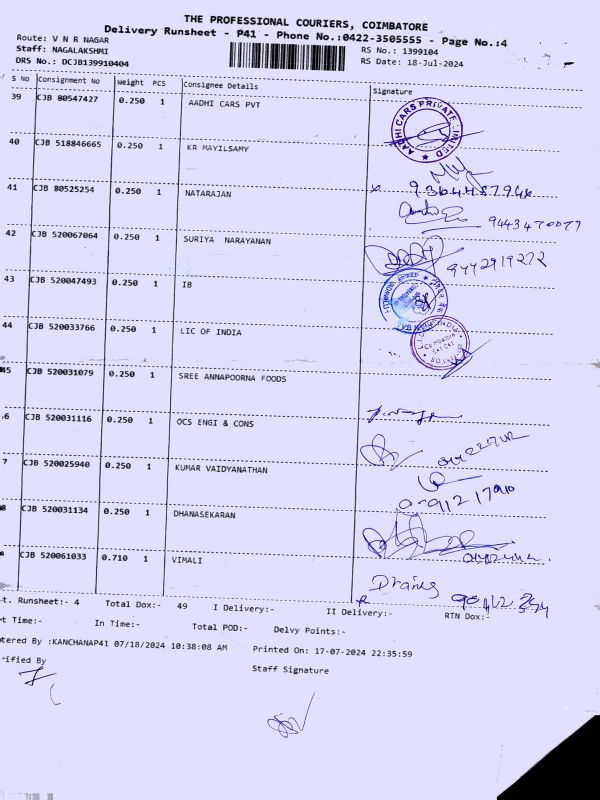 THE PROFESSIONAL COURIERS, COIMBATORE
Delivery Runsheet - P41 - Phone No.:0422-3505555 - Page No.:4
Route: V N R NAGAR
Staff: NAGALAKSHMI RS No.: 1399104
DRS No.: DCJB139910404 RS Date: 18-Jul-2024
S No Consignment No Weight PCS Consignee Details Signature
39 CJB 80547427 0.250 1 AADHI CARS PVT
AADHI CARS PRIVATE LIMITED
40 CJB 518846665 0.250 1 KR MAYILSAMY
41 CJB 80525254 0.250 1 NATARAJAN
9443470077
42 CJB 520067064 0.250 1 SURIYA NARAYANAN
9442919272
43 CJB 520047493 0.250 1 IB
44 CJB 520033766 0.250 1 LIC OF INDIA
Coimbatore
45 CJB 520031079 0.250 1 SREE ANNAPOORNA FOODS
6 CJB 520031116 0.250 1 OCS ENGI & CONS
7 CJB 520025940 0.250 1 KUMAR VAIDYANATHAN
8 CJB 520031134 0.250 1 DHANASEKARAN
CJB 520061033 0.710 1 VIMALI
t. Runsheet:- 4 Total Dox:- 49 I Delivery:- II Delivery:- RTN Dox:-
t Time:- In Time:- Total POD:- Delvy Points:-
tered By :KANCHANAP41 07/18/2024 10:38:08 AM Printed On: 17-07-2024 22:35:59
rified By Staff Signature